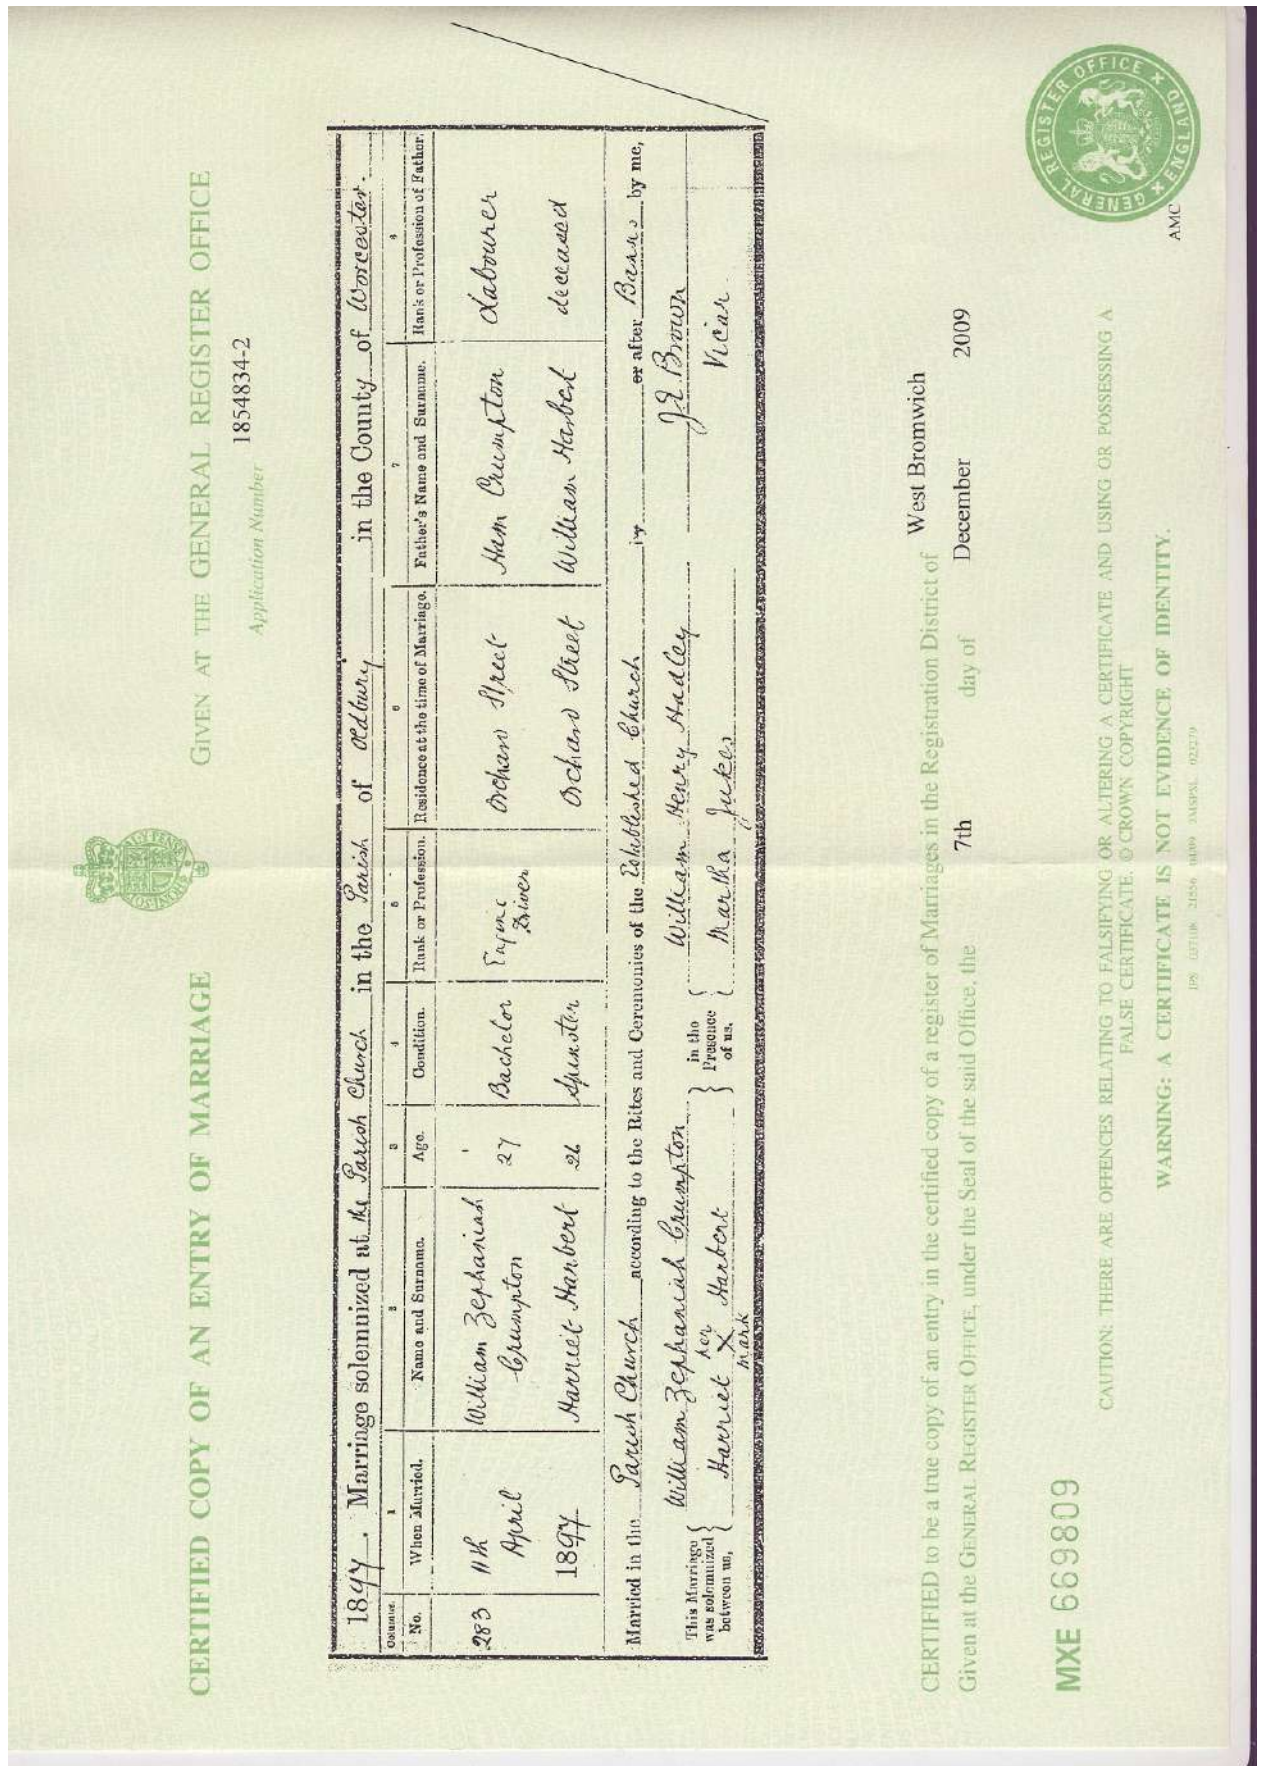 CERTIFIED COPY OF AN ENTRY OF MARRIAGE
GIVEN AT THE GENERAL REGISTER OFFICE
Application Number 1854834-2
1897. Marriage solemnized at the Parish Church in the Parish of Oldbury in the County of Worcester.
Columns. 1 2 3 4 5 6 7 8
No. When Married. Name and Surname. Age. Condition. Rank or Profession. Residence at the time of Marriage. Father's Name and Surname. Rank or Profession of Father.
283 11th April 1897 William Zephaniah Crumpton 27 Bachelor Engine Driver Orchard Street Ham Crumpton Labourer
Harriet Harbert 26 Spinster Orchard Street William Harbert deceased
Married in the Parish Church according to the Rites and Ceremonies of the Established Church by or after Banns by me,
This Marriage was solemnized between us, William Zephaniah Crumpton
Harriet X Harbert
her mark
in the Presence of us, William Henry Hadley
Martha Jukes
J.E. Brown
Vicar.
CERTIFIED to be a true copy of an entry in the certified copy of a register of Marriages in the Registration District of West Bromwich
Given at the GENERAL REGISTER OFFICE, under the Seal of the said Office, the 7th day of December 2009
MXE 669809
CAUTION: THERE ARE OFFENCES RELATING TO FALSIFYING OR ALTERING A CERTIFICATE AND USING OR POSSESSING A
FALSE CERTIFICATE. © CROWN COPYRIGHT
WARNING: A CERTIFICATE IS NOT EVIDENCE OF IDENTITY.
GENERAL REGISTER OFFICE ENGLAND
AMC